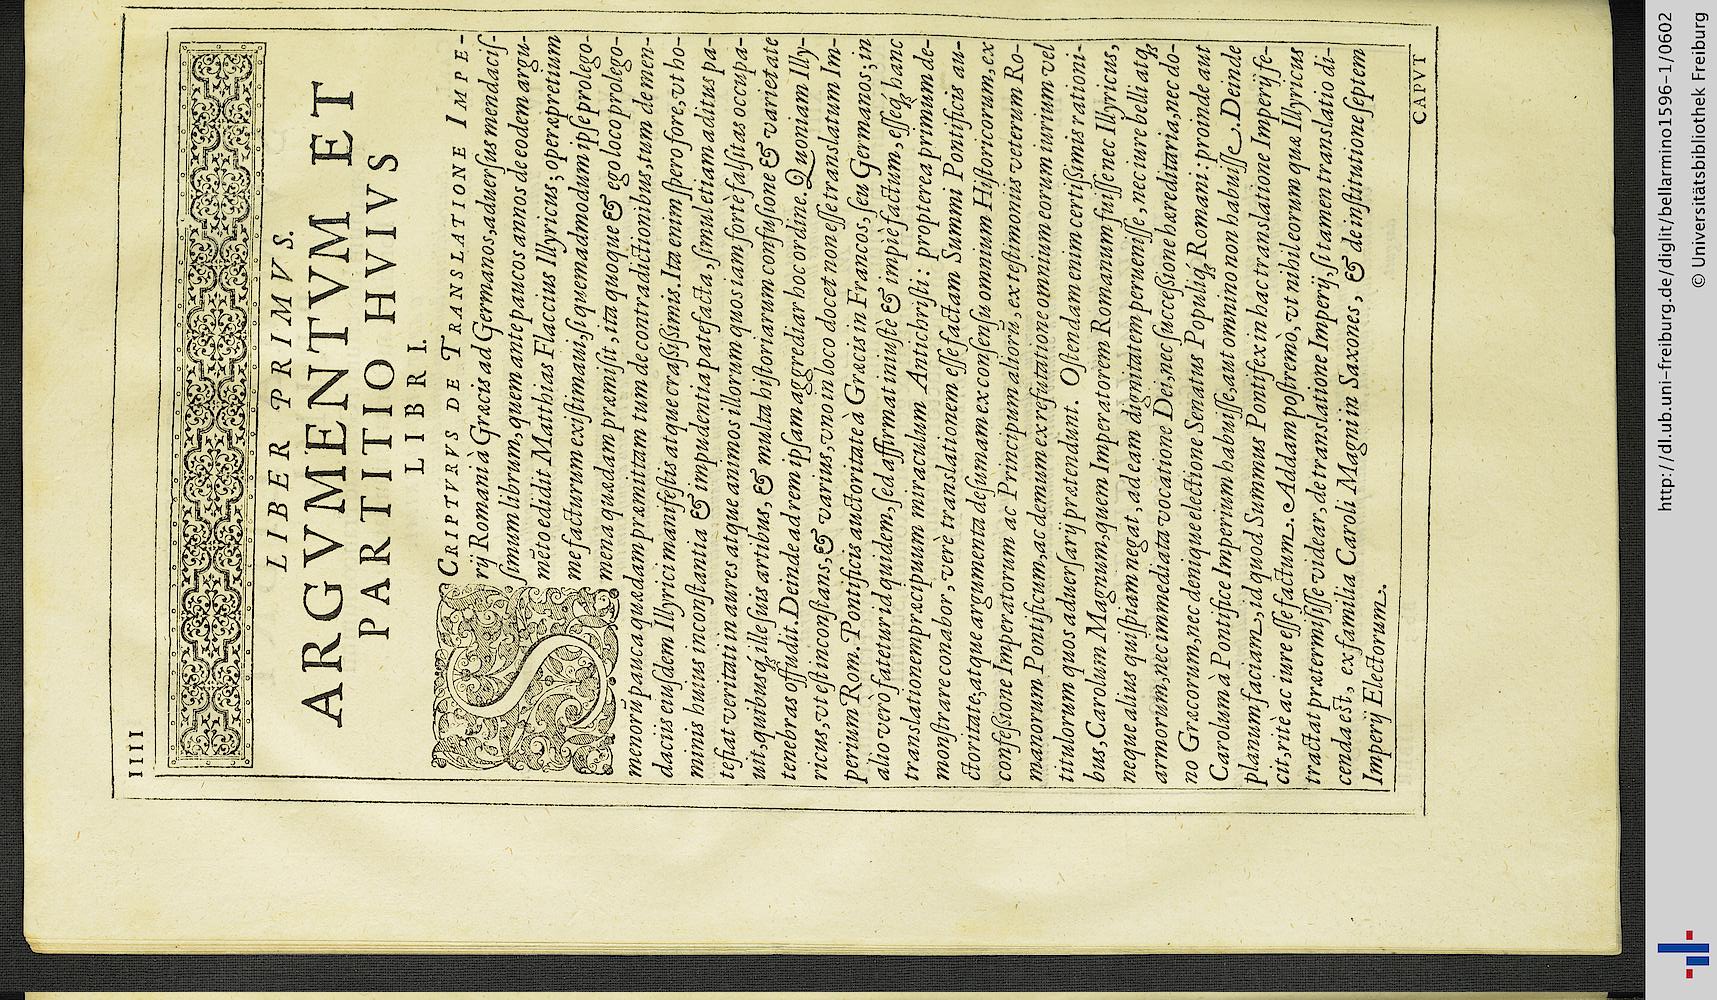 IIII
LIBER PRIMVS.
ARGVMENTVM ET
PARTITIO HVIVS
LIBRI I.
SCRIPTVRVS DE TRANSLATIONE IMPE-
rij Romani à Græcis ad Germanos, aduersus mendacis-
simum librum, quem ante paucos annos de eodem argu-
mẽto edidit Matthias Flaccius Illyricus; operæpretium
me facturum existimaui, si quemadmodum ipse prolego-
mena quædam præmisit, ita quoque & ego loco prolego-
menorũ pauca quædam præmittam tum de contradictionibus, tum de men-
daciis eiusdem Illyrici manifestis atque crassissimis. Ita enim spero fore, vt ho-
minis huius inconstantia & impudentia patefacta, simul etiam aditus pa-
tefiat veritati in aures atque animos illorum quos iam fortè falsitas occupa-
uit, quibusq́; ille suis artibus, & multa historiarum confusione & varietate
tenebras offudit. Deinde ad rem ipsam aggrediar hoc ordine. Quoniam Illy-
ricus, vt est inconstans, & varius, vno in loco docet non esse translatum Im-
perium Rom. Pontificis auctoritate à Græcis in Francos, seu Germanos; in
alio verò fatetur id quidem, sed affirmat iniustè & impiè factum, esseq́; hanc
translationem præcipuum miraculum Antichristi: propterea primùm de-
monstrare conabor, verè translationem esse factam Summi Pontificis au-
ctoritate; atque argumenta desumam ex consensu omnium Historicorum, ex
confessione Imperatorum ac Principum aliorũ, ex testimoniis veterum Ro-
manorum Pontificum, ac demum ex refutatione omnium eorum iurium vel
titulorum quos aduersarij prætendunt. Ostendam enim certissimis rationi-
bus, Carolum Magnum, quem Imperatorem Romanum fuisse nec Illyricus,
neque alius quispiam negat, ad eam dignitatem peruenisse, nec iure belli atq́;
armorum, nec immediata vocatione Dei, nec successione hæreditaria, nec do-
no Græcorum, nec denique electione Senatus Populiq́; Romani: proinde aut
Carolum à Pontifice Imperium habuisse, aut omnino non habuisse. Deinde
planum faciam, id quod Summus Pontifex in hac translatione Imperij fe-
cit, ritè ac iure esse factum. Addam postremò, vt nihil eorum quæ Illyricus
tractat prætermisisse videar, de translatione Imperij, si tamen translatio di-
cenda est, ex familia Caroli Magni in Saxones, & de institutione septem
Imperij Electorum.
CAPVT
http://dl.ub.uni-freiburg.de/diglit/bellarmino1596-1/0602
© Universitätsbibliothek Freiburg